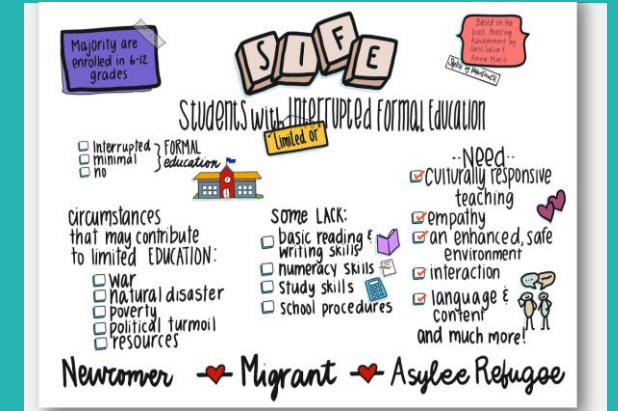 Majority are
enrolled in 6-12
grades
SIFE
Based in the
book Boosting
Achievement by
Carol Salva &
Anna Matis
Students with Interrupted Formal Education
"Limited or"
Interrupted
minimal
no
FORMAL
education
circumstances
that may contribute
to limited EDUCATION:
war
natural disaster
poverty
political turmoil
resources
Some LACK:
basic reading &
writing skills
numeracy skills
study skills
school procedures
..Need..
culturally responsive
teaching
empathy
an enhanced, safe
environment
interaction
language &
content
and much more!
Newcomer Migrant Asylee Refugee